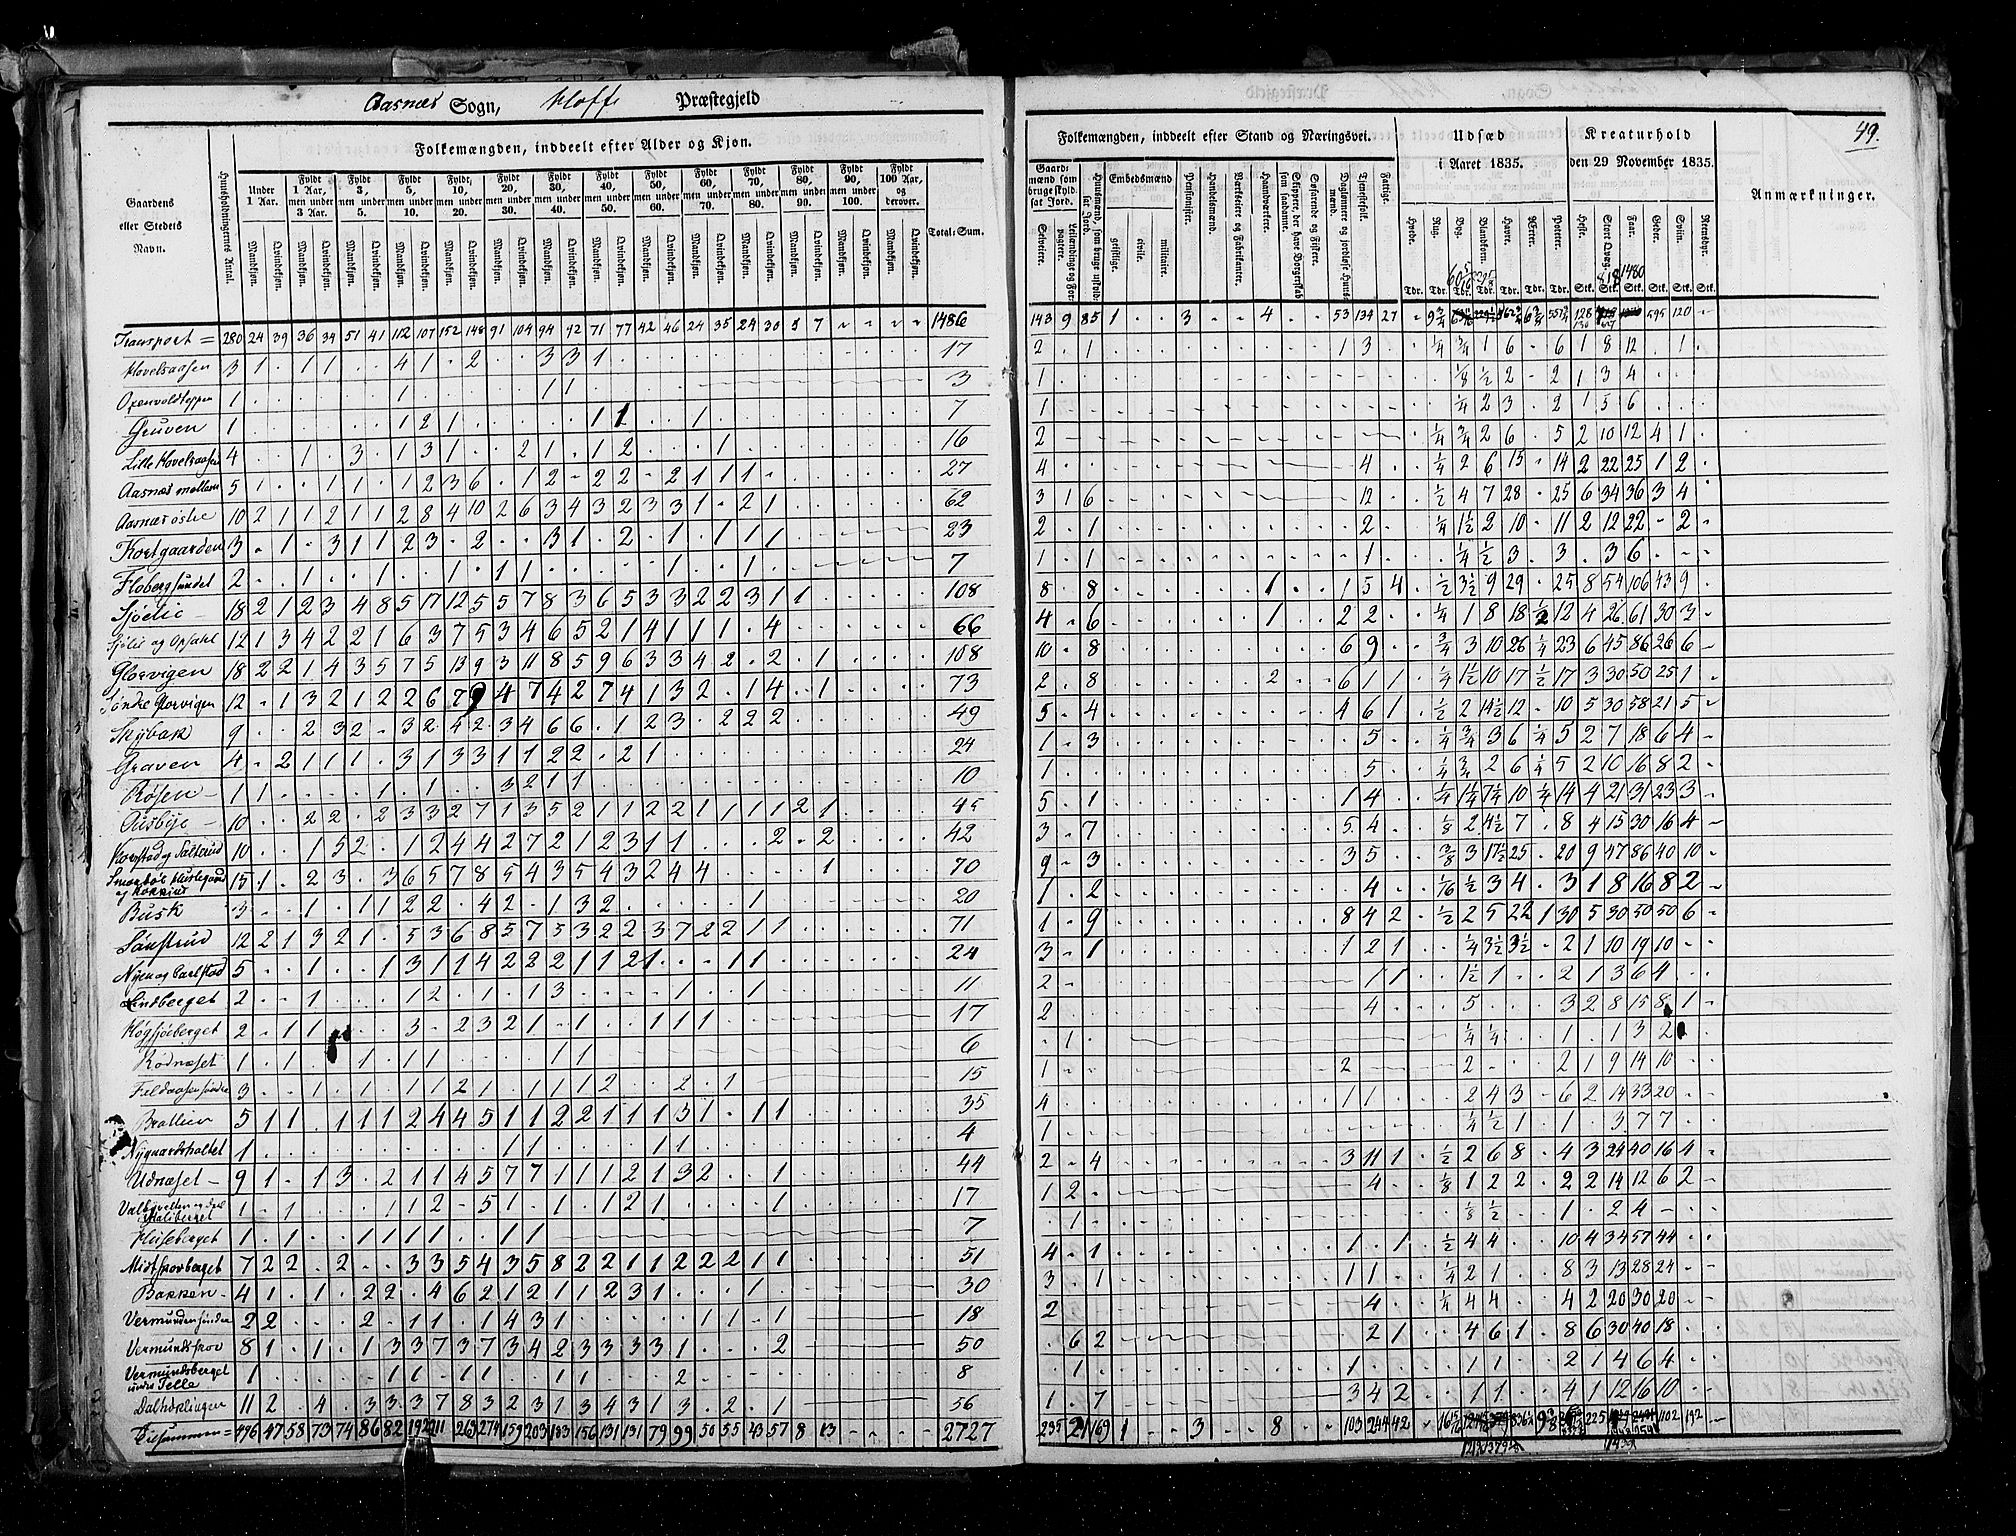 Aasnæs Sogn, Hoff Præstegjeld
49.
Gaardens eller Stedets Navn.
Huusholdningernes Antal.
Folkemængden, inddeelt efter Alder og Kjøn.
Under 1 Aar.
Fyldt 1 Aar, men under 3 Aar.
Fyldt 3, men under 5.
Fyldt 5, men under 10.
Fyldt 10, men under 20.
Fyldt 20, men under 30.
Fyldt 30, men under 40.
Fyldt 40, men under 50.
Fyldt 50, men under 60.
Fyldt 60, men under 70.
Fyldt 70, men under 80.
Fyldt 80 men under 90.
Fyldt 90, men under 100.
Fyldt 100 Aar, og derover.
Mandkjøn. Qvindekjøn.
Total-Sum.
Folkemængden, inddeelt efter Stand og Næringsvei.
Gaardmænd som bruge skyldsat Jord.
Selveiere.
Leilændinge og Forpagtere.
Huusmænd, som bruge uskyldsat Jord.
Embedsmænd
geistlige. civile. militaire.
Pensionister.
Handelsmænd.
Værkseiere og Fabrikanter.
Haandværkere.
Skippere, der have Borgerskab som saadanne.
Søfarende og Fiskere.
Daglønnere og jordløse Huusmænd.
Tjenestefolk.
Fattige.
Udsæd i Aaret 1835.
Hvede. Rug. Byg. Blandkorn. Havre. Erter. Poteter.
Tdr. Tdr. Tdr. Tdr. Tdr. Tdr. Tdr.
Kreaturhold den 29 November 1835.
Heste. Stort Qvæg. Faar. Geder. Sviin. Rensdyr.
Stk. Stk. Stk. Stk. Stk. Stk.
Anmærkninger.
Transport = 280 24 39 36 34 51 41 112 107 152 148 91 104 94 92 71 77 42 46 24 35 24 30 5 7 1486
Hovelsaasen 3 1 1 1 4 1 2 3 3 1 17
Oxenvoldtoppen 1 1 1 1 3
Gruven 1 1 2 1 1 1 1 7
Lille Hovelsaasen 4 1 3 1 3 1 2 1 1 2 1 16
Aasnæs mellem 5 1 1 1 1 2 3 6 1 2 2 2 2 1 1 1 27
Aasnæs østre 10 2 1 1 2 1 1 2 8 4 10 2 6 3 4 3 2 3 3 1 2 1 62
Kortgaarden 3 1 3 1 1 2 3 2 3 1 2 1 1 1 1 23
Flobergsundet 2 1 1 1 1 1 1 1 7
Sjølie 18 2 1 2 3 4 8 5 17 12 5 5 7 8 3 6 5 3 3 2 2 3 1 1 108
Sjølie og Opsahl 12 1 3 4 2 2 1 6 3 7 5 3 4 6 5 2 1 4 1 1 1 4 66
Glorvigen 18 2 2 1 4 3 5 7 5 13 9 3 11 8 5 9 6 3 3 4 2 2 1 108
Søndre Glorvigen 12 1 3 2 1 2 2 6 7 9 4 7 4 2 7 4 1 3 2 1 4 1 73
Skybak 9 2 3 2 3 2 4 2 3 4 6 6 1 2 3 2 2 2 49
Graven 4 2 1 1 1 3 1 3 3 1 1 2 2 2 1 24
Røsen 1 1 1 1 3 2 1 1 10
Ousbye 10 2 2 2 3 3 2 7 1 3 5 2 1 1 2 2 1 1 1 1 2 1 45
Korstad og Salterud 10 1 5 2 1 2 4 4 2 7 2 1 2 3 1 1 2 2 42
15 1 2 3 3 6 5 7 8 5 4 3 5 4 3 2 4 4 1 70
Busk 3 1 1 1 2 2 4 2 1 3 2 1 20
Sønstrud 12 2 1 3 2 1 5 3 6 8 5 7 5 3 2 2 3 7 2 2 1 1 71
Nyen og Carlstad 5 1 1 3 1 1 4 2 2 2 1 1 2 1 1 1 24
Lindberget 2 1 1 2 1 1 3 1 1 11
Høgsjøberget 2 1 1 3 2 3 2 1 1 1 1 1 17
Rødnæset 1 1 1 1 1 1 1 6
Feldaasen søndre 3 1 1 1 1 2 1 1 1 1 2 2 1 15
Bratlien 5 1 1 1 1 1 2 4 4 5 1 1 2 2 1 1 1 3 1 1 1 35
Nygaardsholtet 1 1 1 1 1 4
Udnæset 9 1 1 3 2 1 1 4 5 7 7 1 1 1 2 1 3 2 1 44
1 1 1 1 2 5 1 1 1 2 1 1 17
Huseberget 1 1 1 1 1 1 1 1 7
Midtskovberget 7 2 2 2 3 3 5 4 3 5 8 2 2 1 1 2 2 2 1 1 51
Bakken 4 1 1 2 2 4 6 2 1 2 1 1 2 3 1 1 30
Vermunden søndre 2 2 2 1 1 1 4 3 1 1 1 1 18
Vermundskov 8 1 1 1 3 3 7 3 7 3 4 2 3 3 3 3 1 2 50
Vermundsberget under Telle 1 1 1 1 1 1 1 2 8
Dalhæklingen 11 2 4 3 3 3 7 8 3 2 3 1 3 4 3 1 3 2 1 56
Tilsammen = 496 47 58 73 74 86 82 192 211 263 274 159 203 183 156 131 131 79 99 50 55 43 57 8 13 2727
143 9 85 1 3 4 53 134 27
2 1 1 3 ¼ ¾ 1 6 6 1 8 12 1
1 ⅛ ½ 2 2 1 3 4
1 ¼ 2 3 2 1 5 6
2 ¼ ¾ 2 6 5 2 10 12 4 1
4 4 ¼ 2 6 15 14 2 22 25 1 2
3 1 6 12 ½ 4 7 28 25 6 34 36 3 4
2 1 2 ¼ 1½ 2 10 11 2 12 22 2
1 1 1 ¼ ½ 3 3 3 6
8 8 1 1 5 4 ½ 3½ 9 29 25 8 54 106 43 9
4 6 1 2 2 ¼ 1 8 18 ½ 12 4 26 61 30 3
10 8 6 9 ¾ 3 10 26 ¼ 23 6 45 86 26 6
2 8 2 6 1 1 ¼ 1½ 10 17 ½ 17 3 30 50 25 1
5 4 4 6 1 ½ 2 14½ 12 10 5 30 58 21 5
1 3 5 ¼ ¾ 3 6 ¼ 5 2 7 18 6 4
1 5 ¼ ¾ 2 6 ¼ 5 2 10 16 8 2
5 1 1 4 ¼ 1¼ 7¼ 10 ¼ 14 4 21 31 23 3
3 7 5 4 ⅛ 2 4½ 7 8 4 15 30 16 4
9 3 3 5 ⅜ 3 17½ 25 20 9 47 86 40 10
1 2 4 1/16 ½ 3 4 3 1 8 16 8 2
1 9 8 4 2 ½ 2 5 22 1 30 5 30 50 50 6
3 1 1 2 1 ¼ 3½ 3½ 2 1 10 19 10
2 1 1 1½ 1 2 1 3 6 4
2 4 5 3 2 8 15 8 1
1 ¼ ¼ 1 1 3 2
1 2 2 2 1 9 14 10
4 1 1 2 4 3 6 2 14 33 20
1 ¼ ½ 1 1 3 7 7
2 4 3 11 1 ½ 2 6 8 4 3 24 40 16 4
1 2 4 ⅛ 1 2 2 2 2 14 12 6 2
1 ⅛ ½ 1 2 4
4 1 1 1 ½ 4 4 10 4 34 57 44
3 1 1 1 ¼ 2 1 8 3 13 28 24
2 4 ¼ 4 4 4 2 20 30 20
6 2 2 1 4 6 1 8 6 30 40 18
1 1 1 1 2 1 4 6 4
1 7 3 4 2 1 1 4 1 12 16 10
235 21 169 1 3 8 103 244 42